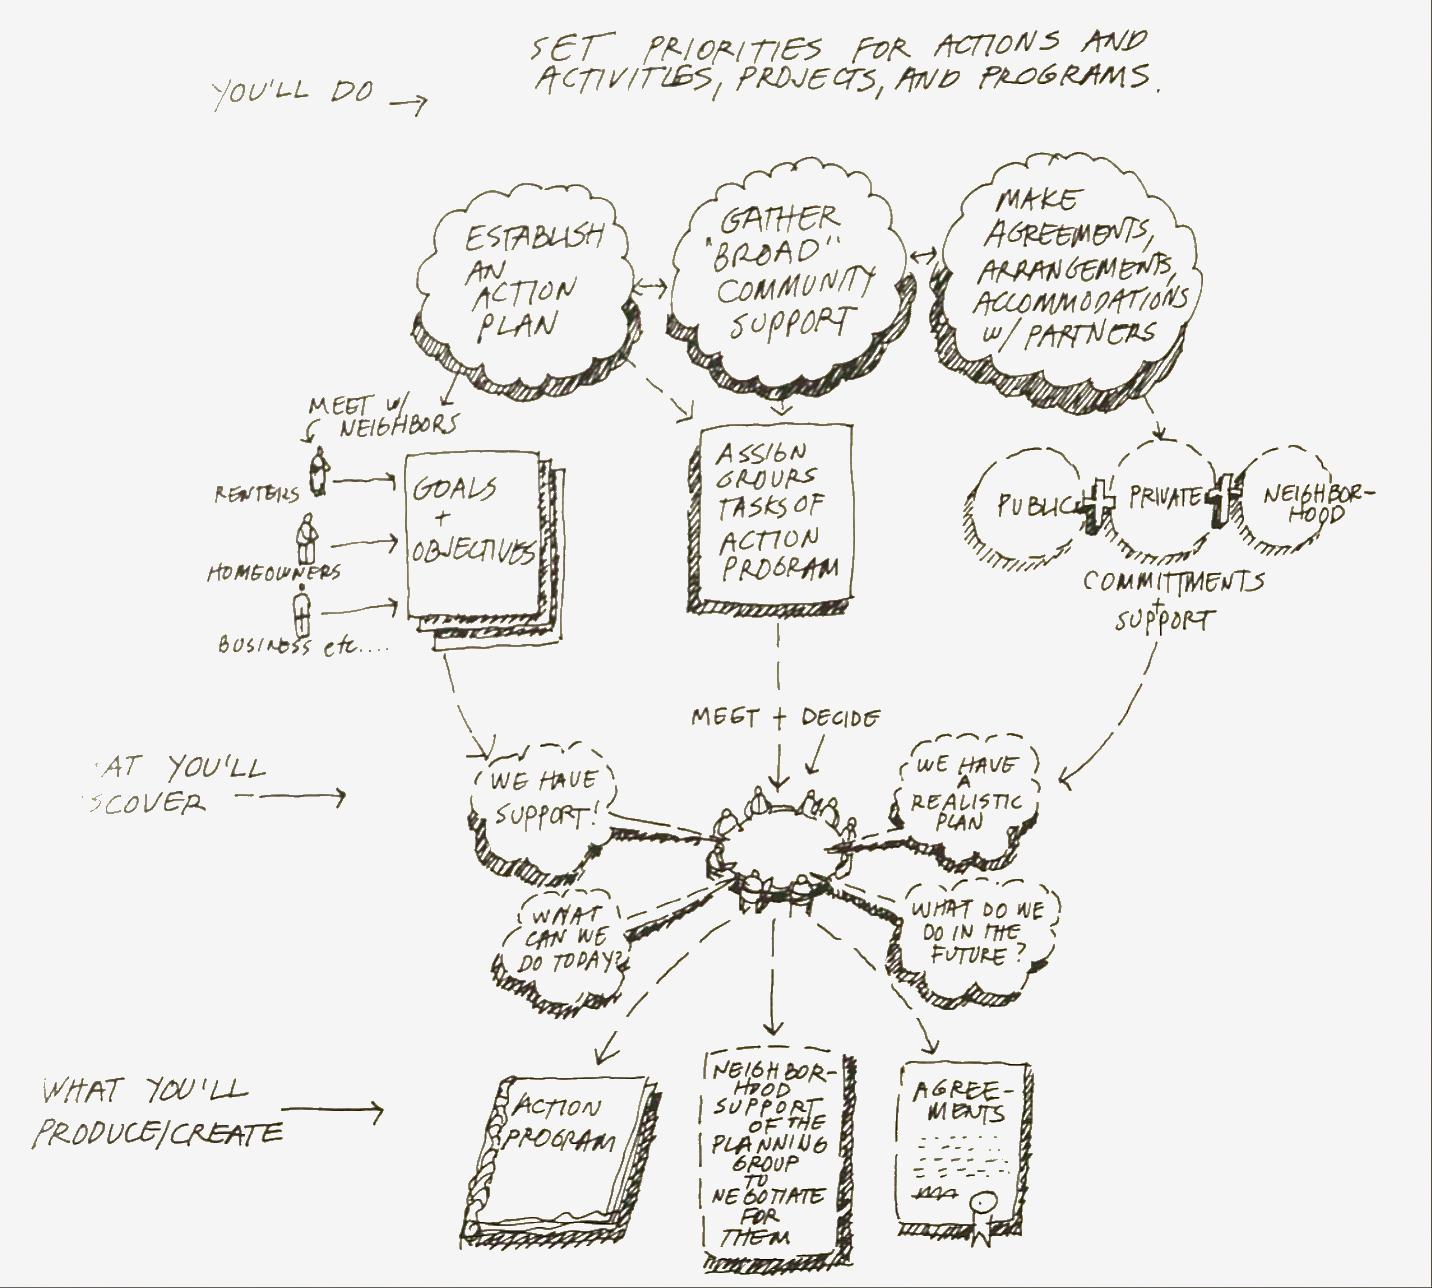 SET PRIORITIES FOR ACTIONS AND
ACTIVITIES, PROJECTS, AND PROGRAMS.
YOU'LL DO
ESTABLISH
AN
ACTION
PLAN
GATHER
"BROAD"
COMMUNITY
SUPPORT
MAKE
AGREEMENTS,
ARRANGEMENTS,
ACCOMMODATIONS
W/ PARTNERS
MEET W/
NEIGHBORS
RENTERS
HOMEOWNERS
BUSINESS etc....
GOALS
+
OBJECTIVES
ASSIGN
GROUPS
TASKS OF
ACTION
PROGRAM
PUBLIC
PRIVATE
NEIGHBOR-
HOOD
COMMITTMENTS
+
SUPPORT
MEET + DECIDE
AT YOU'LL
SCOVER
WE HAVE
SUPPORT!
WE HAVE
A
REALISTIC
PLAN
WHAT
CAN WE
DO TODAY?
WHAT DO WE
DO IN THE
FUTURE?
WHAT YOU'LL
PRODUCE/CREATE
ACTION
PROGRAM
NEIGHBOR-
HOOD
SUPPORT
OF THE
PLANNING
GROUP
TO
NEGOTIATE
FOR
THEM
AGREE-
MENTS